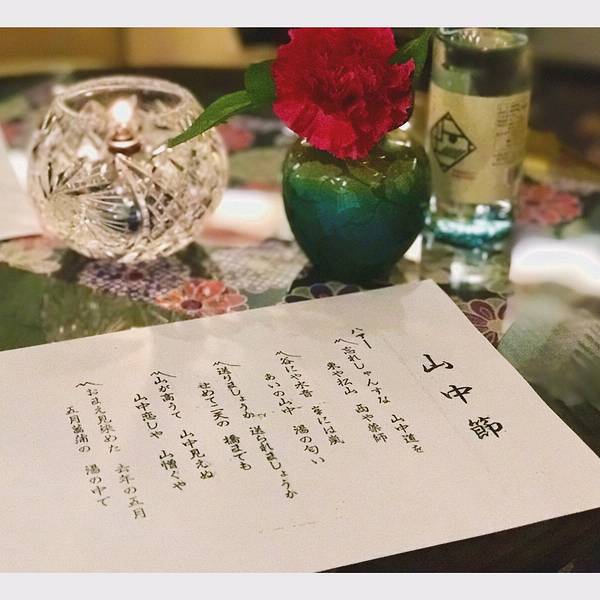 山中節
ハアー
〽忘れしゃんすな 山中道を
東や松山 西や薬師
〽谷にや水音 峯には嵐
あいの山中 湯の匂い
〽送りましょうか 送られましょうか
せめて二天の 橋までも
〽山が高うて 山中見えぬ
山中恋しや 山憎くや
〽おまえ見染めた 去年の五月
五月菖蒲の 湯の中で